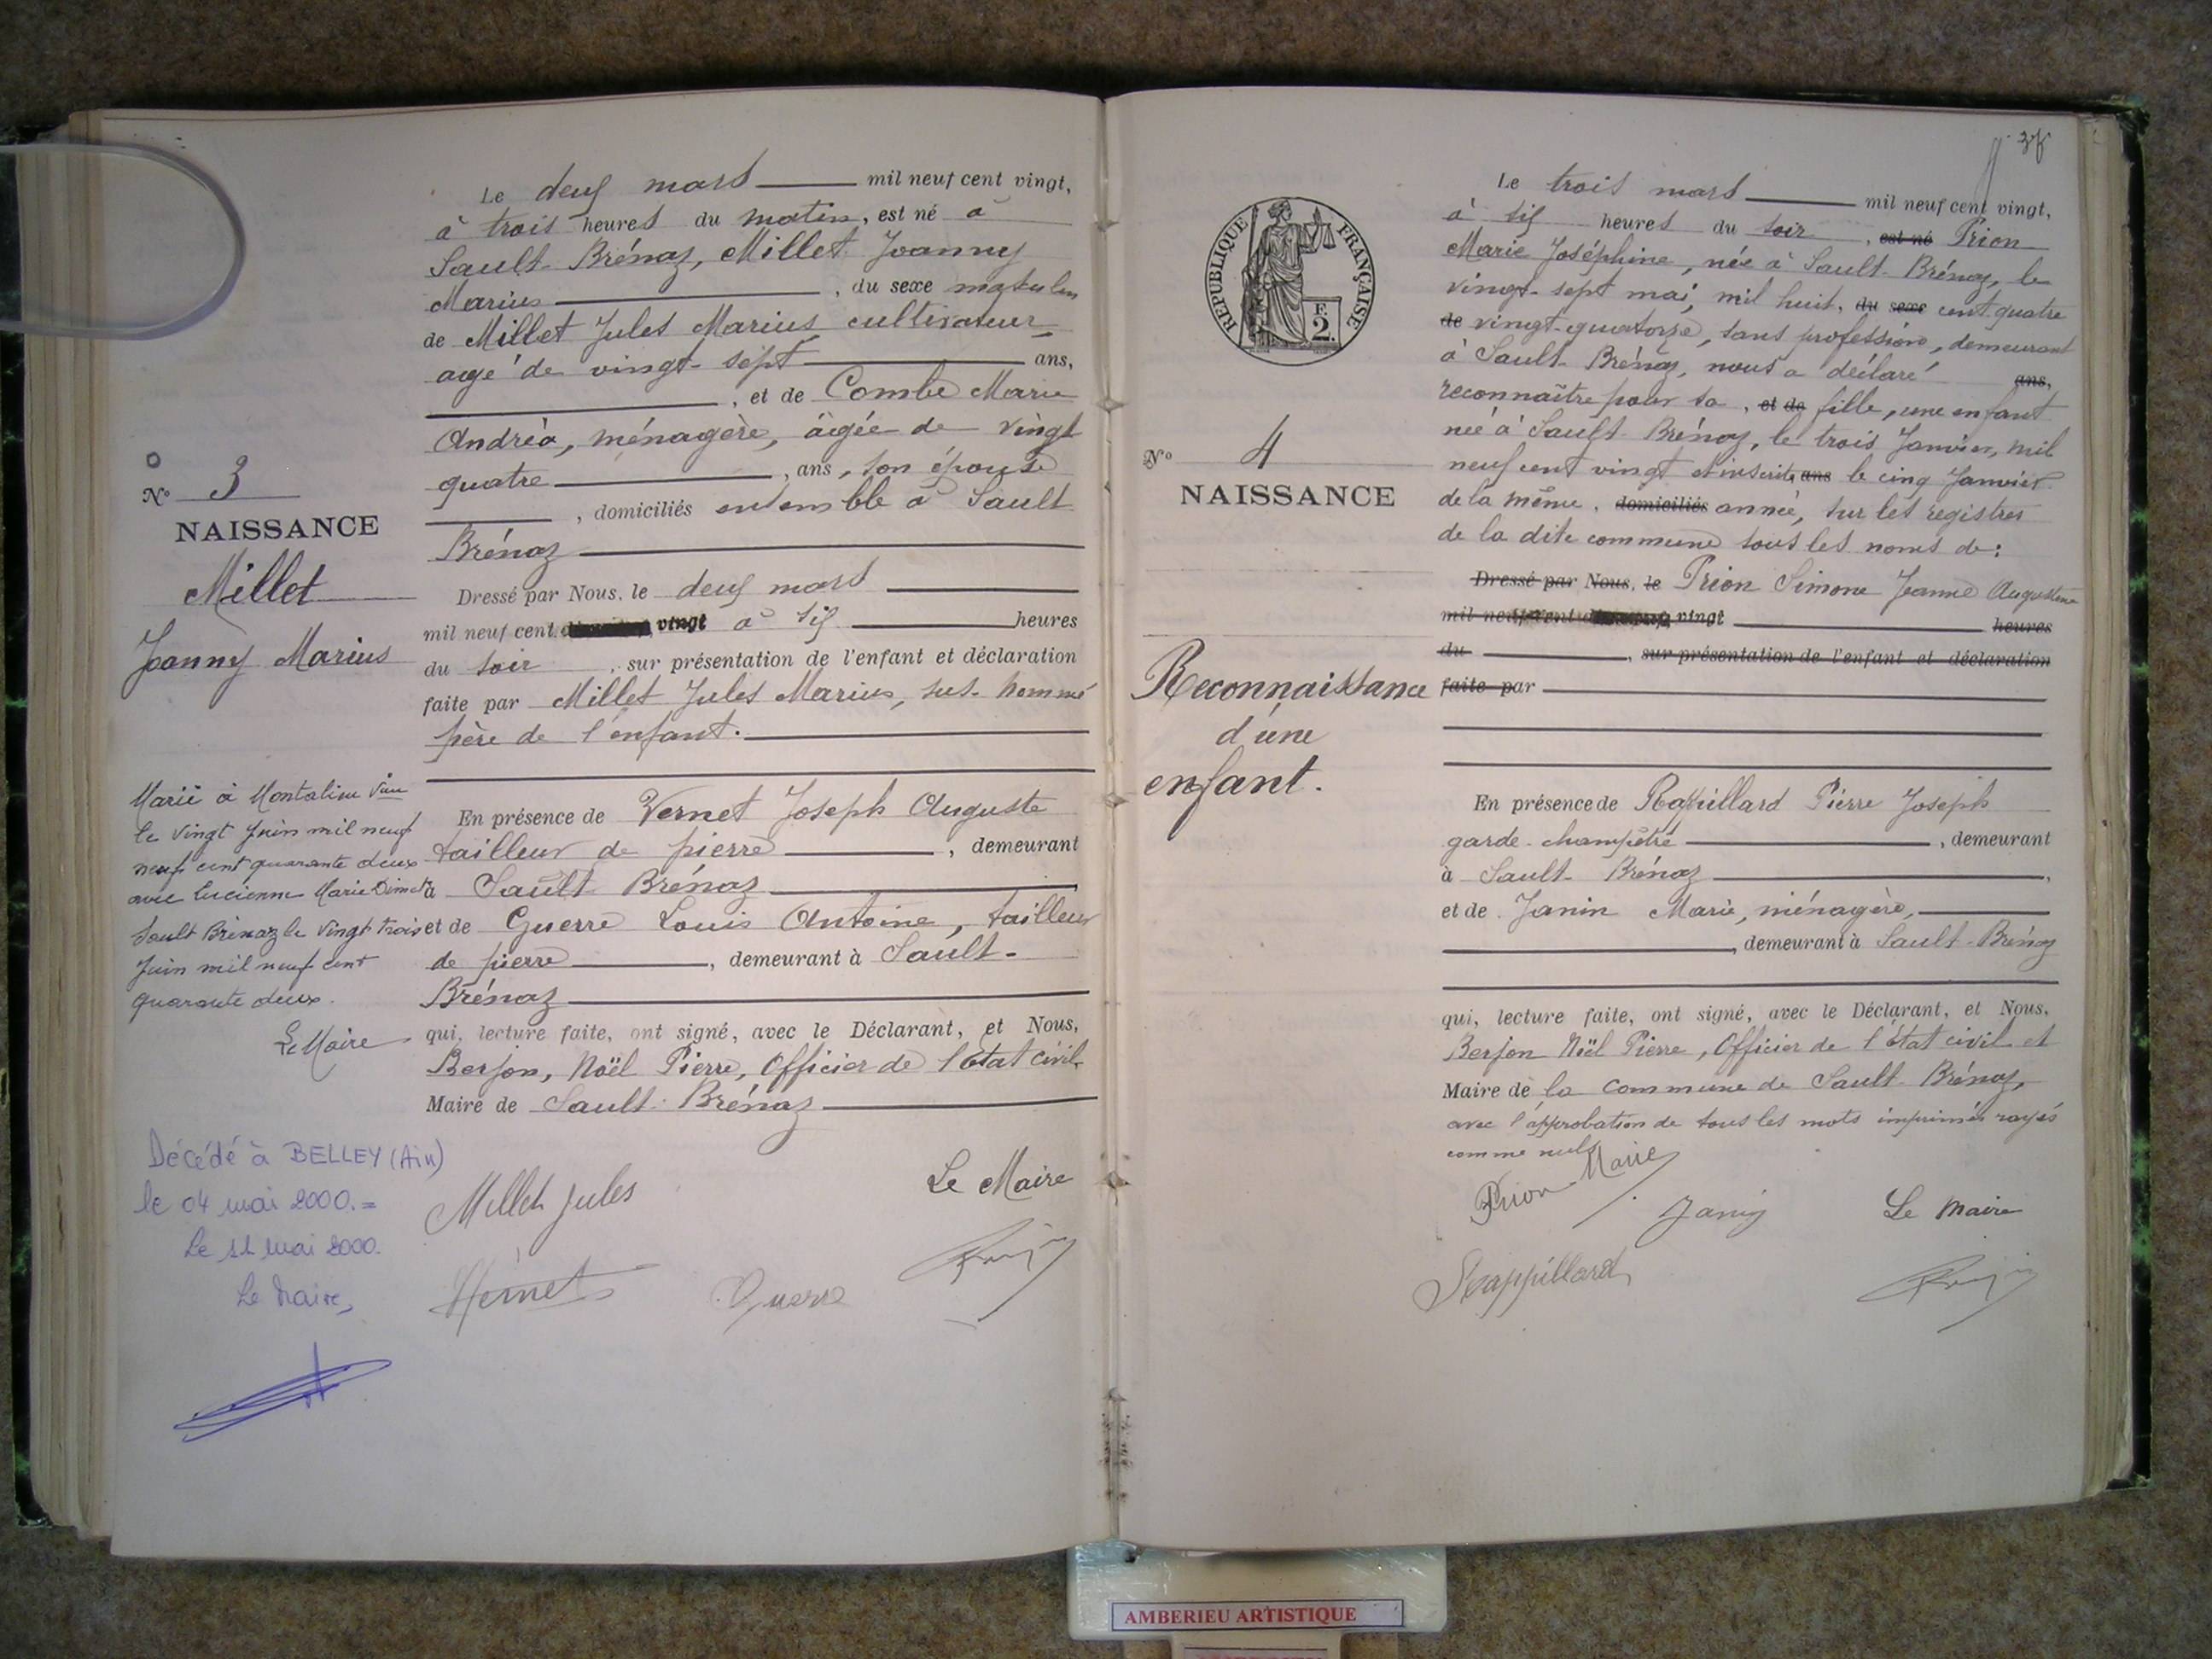 Le deux mars mil neuf cent vingt,
à trois heures du matin, est né à
Sault-Brénaz, Millet Joanny
Marius, du sexe masculin
de Millet Jules Marius cultivateur,
âgé de vingt-sept ans,
, et de Combe Marie
Andréa, ménagère, âgée de vingt
quatre, ans, son épouse
, domiciliés ensemble à Sault
Brénaz
Dressé par Nous, le deux mars
mil neuf cent vingt à six heures
du soir, sur présentation de l'enfant et déclaration
faite par Millet Jules Marius, sus-nommé
père de l'enfant.
En présence de Vernet Joseph Auguste
tailleur de pierre, demeurant
à Sault Brénaz
et de Guerre Louis Antoine, tailleur
de pierre, demeurant à Sault-
Brénaz
qui, lecture faite, ont signé, avec le Déclarant, et Nous,
Berjon, Noël Pierre, Officier de l'état civil
Maire de Sault-Brénaz
Le Maire
Millet Jules
Vernet
Guerre
N° 3
NAISSANCE
Millet
Joanny Marius
Marié à Montalieu Vieu
le vingt Juin mil neuf
neuf cent quarante deux
avec Lucienne Marie Dimet
Sault Brénaz le vingt trois
Juin mil neuf cent
quarante deux.
Le Maire
Décédé à BELLEY (Ain)
le 04 mai 2000.=
Le 11 mai 2000.
Le Maire,
37
REPUBLIQUE FRANÇAISE
F.
2.
N° 4
NAISSANCE
Reconnaissance
d'une
enfant.
Le trois mars mil neuf cent vingt,
à six heures du soir, est né Prion
Marie Joséphine, née à Sault-Brénaz, le
vingt-sept mai, mil huit, du sexe cent quatre
de vingt-quatorze, sans profession, demeurant
à Sault-Brénaz, nous a déclaré ans,
reconnaître pour sa, et de fille, une enfant
née à Sault-Brénaz, le trois Janvier, mil
neuf cent vingt et inscrite ans le cinq Janvier
de la même, domiciliés année, sur les registres
de la dite commune sous les noms de:
Dressé par Nous, le Prion Simone Jeanne Augustine
mil neuf cent vingt heures
du, sur présentation de l'enfant et déclaration
faite par
En présence de Rappillard Pierre Joseph
garde-champêtre, demeurant
à Sault-Brénaz,
et de Janin Marie, ménagère,
, demeurant à Sault-Brénaz
qui, lecture faite, ont signé, avec le Déclarant, et Nous,
Berjon Noël Pierre, Officier de l'état civil et
Maire de la commune de Sault-Brénaz,
avec l'approbation de tous les mots imprimés rayés
comme nuls
Prion Marie
Janin
Le Maire
Rappillard
AMBERIEU ARTISTIQUE